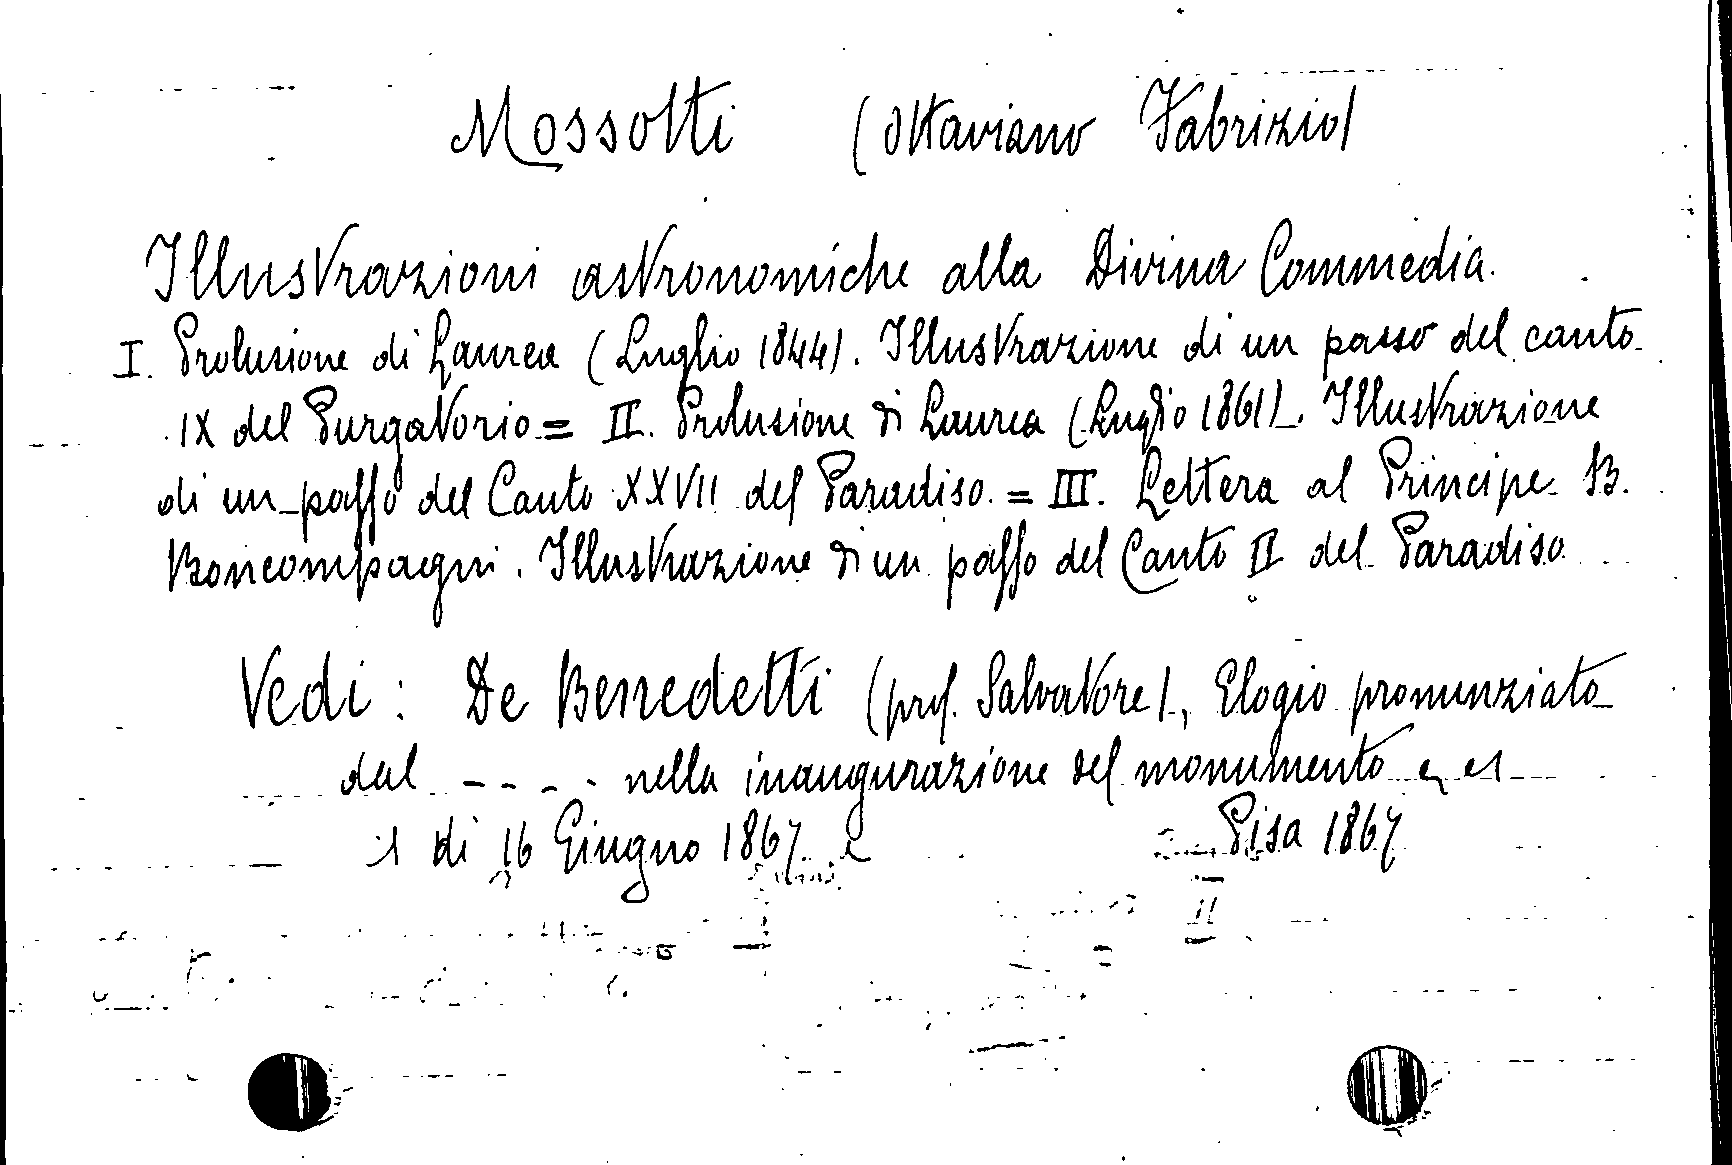 Mossotti (Ottaviano Fabrizio)
Illustrazioni astronomiche alla Divina Commedia.
I. Prolusione di Laurea (Luglio 1844). Illustrazione di un passo del canto
IX del Purgatorio = II. Prolusione di Laurea (Luglio 1861). Illustrazione
di un passo del Canto XXVII del Paradiso. = III. Lettera al Principe B.
Boncompagni. Illustrazione di un passo del Canto II del Paradiso
Vedi: De Benedetti (prof. Salvatore), Elogio pronunziato
dal - - - - nella inaugurazione del monumento
di 16 Giugno 1867 Pisa 1867